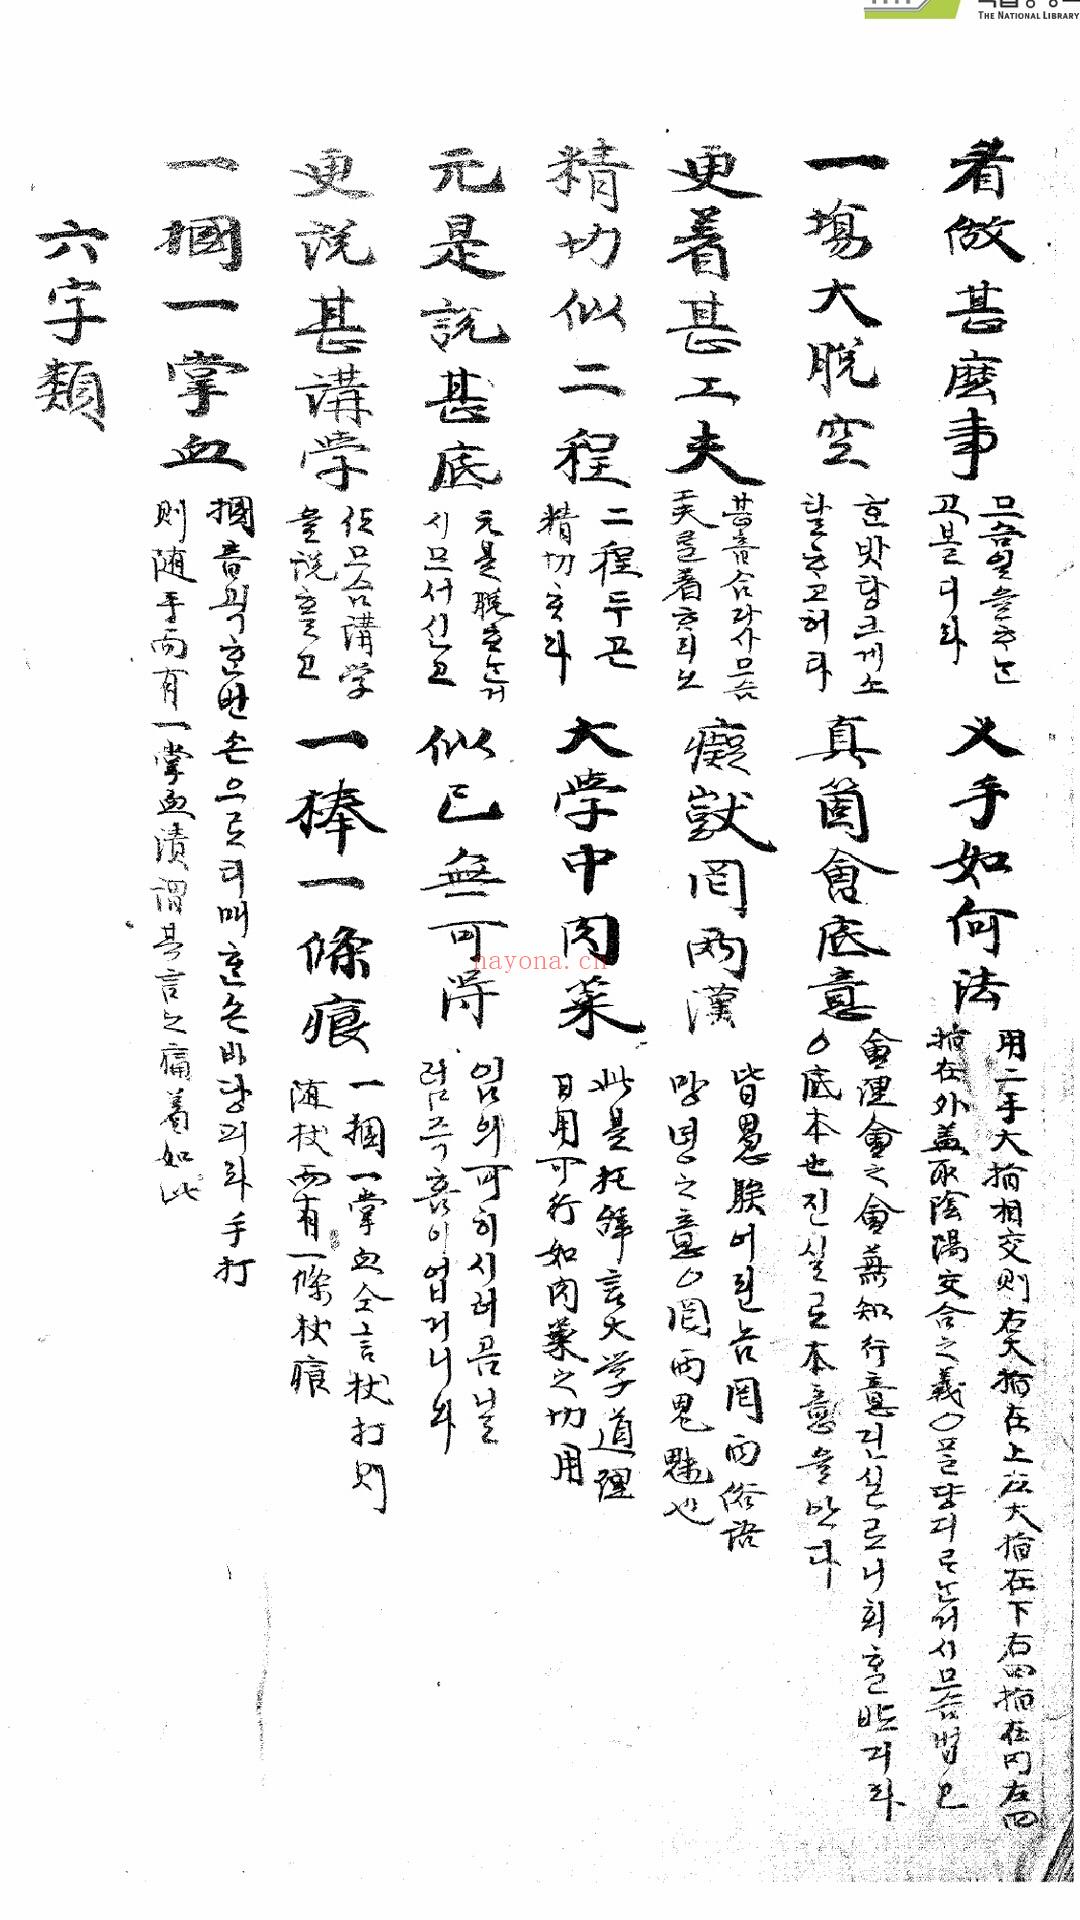 看做甚麽事 므슴일을ᄒᆞᄂᆞᆫ고볼디라 叉手如何法 用二手大指相交則右大指在上左大指在下右四指在内左四指在外盖取陰陽交合之義○믈댱디르ᄂᆞᆫ거시므슴법고
一塲大脫空 ᄒᆞᆫ밧탕크게소탈ᄒᆞ고허타 真箇會底意 會理會之會兼知行意진실로니회ᄒᆞᆯ바드라○底本也진실로本意을안다
更着甚工夫 甚音合다시므슴工夫를着ᄒᆞ리오 癡獃罔兩漢 皆愚騃어린놈罔兩俗語망녕之意○罔兩鬼魅也
精切似二程 二程두곤精切ᄒᆞ라 大学中肉菜 此是托辞言大学道理日用可行如肉菜之切用
元是説甚底 元是脫ᄒᆞᄂᆞᆫ거시므서신고 似已無可得 임의可히시러곰날럼즉홈이업거니와
更説甚講学 다시므슴講学을説ᄒᆞᆯ고 一棒一條痕 一摑一掌血仝言杖打則随杖而有一條杖痕
一摑一掌血 摑音괵ᄒᆞᆫ번손으로티매ᄒᆞᆫ손바당피라手打則随手而有一掌血漬謂其言之痛着如此
六字類
THE NATIONAL LIBRARY
nayona.cn